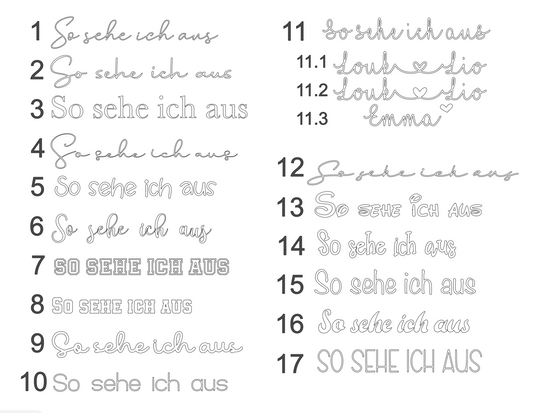 1 So sehe ich aus
2 So sehe ich aus
3 So sehe ich aus
4 So sehe ich aus
5 So sehe ich aus
6 So sehe ich aus
7 SO SEHE ICH AUS
8 SO SEHE ICH AUS
9 So sehe ich aus
10 So sehe ich aus
11 So sehe ich aus
11.1 Louk ♡ Lio
11.2 Louk ♡ Lio
11.3 Emma ♡
12 So sehe ich aus
13 So SEHE iCH AUS
14 So sehe ich aus
15 So sehe ich aus
16 So sehe ich aus
17 SO SEHE ICH AUS